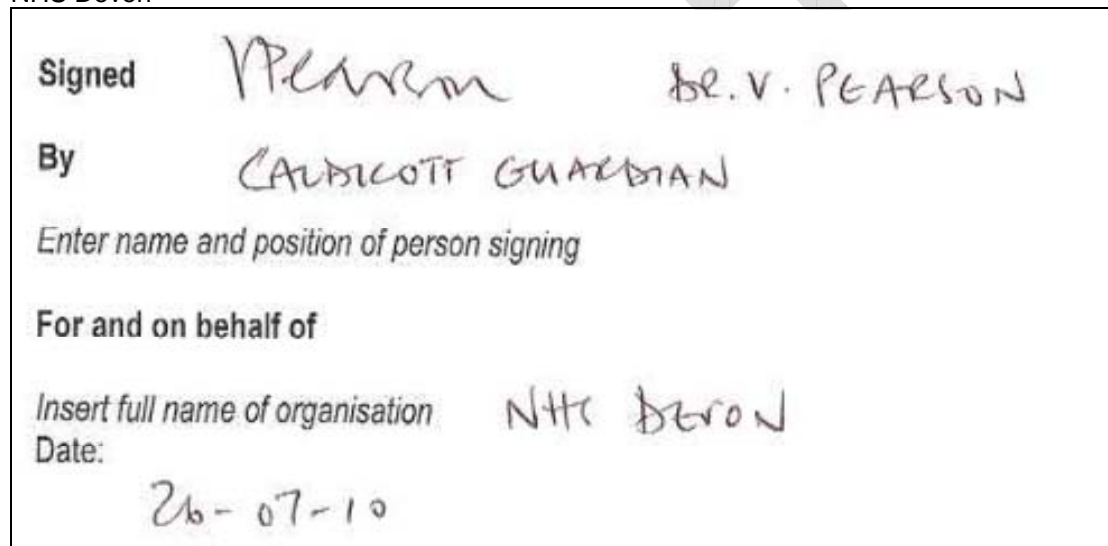 Signed VPearson DR. V. PEARSON
By CALDICOTT GUARDIAN
Enter name and position of person signing
For and on behalf of
Insert full name of organisation NHS DEVON
Date:
26-07-10